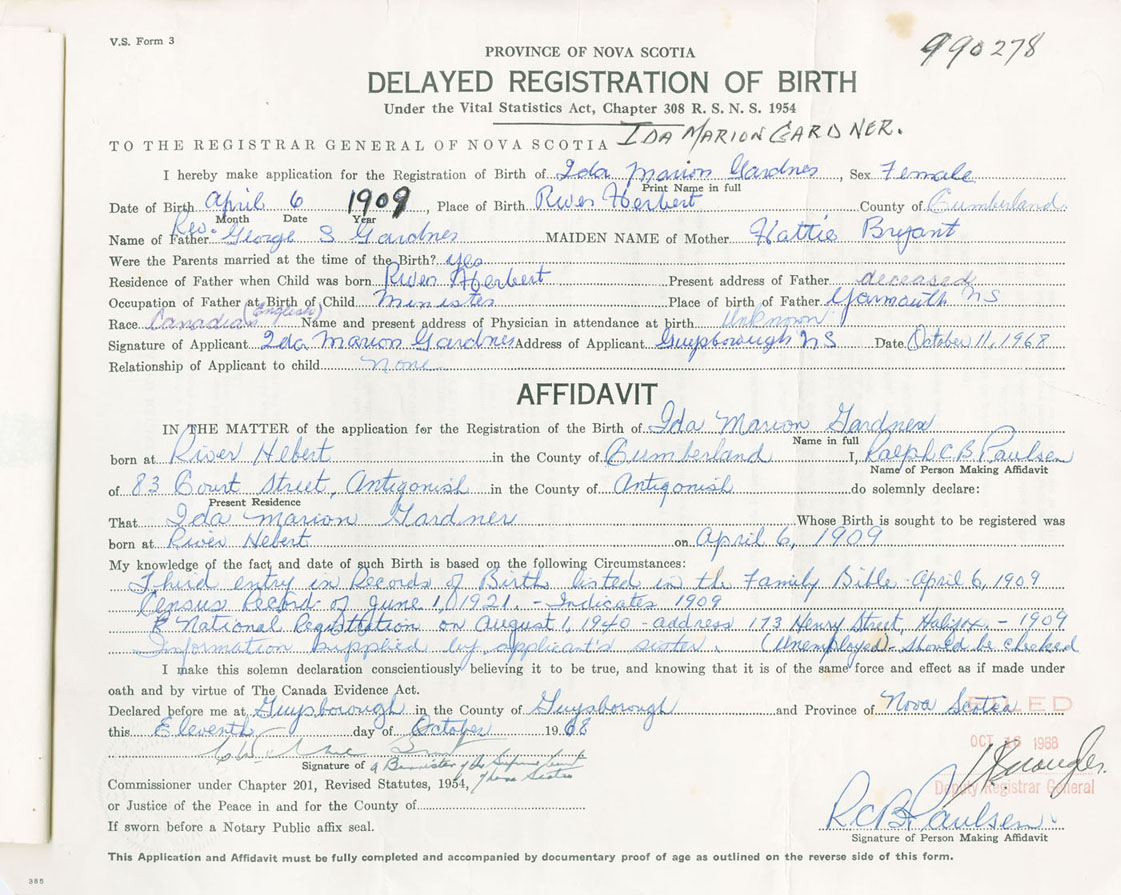 V.S. Form 3
990278
PROVINCE OF NOVA SCOTIA
DELAYED REGISTRATION OF BIRTH
Under the Vital Statistics Act, Chapter 308 R. S. N. S. 1954
IDA MARION GARDNER.
TO THE REGISTRAR GENERAL OF NOVA SCOTIA
I hereby make application for the Registration of Birth of Ida Marion Gardner, Sex Female
Print Name in full
Date of Birth April 6 1909, Place of Birth River Herbert County of Cumberland
Month Date Year
Name of Father Rev. George S Gardner MAIDEN NAME of Mother Hattie Bryant
Were the Parents married at the time of the Birth? yes
Residence of Father when Child was born River Herbert Present address of Father deceased
Occupation of Father at Birth of Child Minister Place of birth of Father Yarmouth NS
Race Canadian (English) Name and present address of Physician in attendance at birth Unknown
Signature of Applicant Ida Marion Gardner Address of Applicant Guysborough NS Date October 11, 1968
Relationship of Applicant to child none
AFFIDAVIT
IN THE MATTER of the application for the Registration of the Birth of Ida Marion Gardner
Name in full
born at River Hebert in the County of Cumberland I, Ralph C B Paulsen
Name of Person Making Affidavit
of 83 Court Street, Antigonish in the County of Antigonish do solemnly declare:
Present Residence
That Ida Marion Gardner Whose Birth is sought to be registered was
born at River Hebert on April 6, 1909
My knowledge of the fact and date of such Birth is based on the following Circumstances:
Third entry in Records of Birth listed in the Family Bible - April 6, 1909
Census Record of June 1, 1921. - Indicates 1909
National Registration on August 1, 1940 - address 173 Henry Street, Halifax - 1909
Information supplied by applicant's sister. (Unemployed) - should be checked
I make this solemn declaration conscientiously believing it to be true, and knowing that it is of the same force and effect as if made under
oath and by virtue of The Canada Evidence Act.
Declared before me at Guysborough in the County of Guysborough and Province of Nova Scotia
FILED
this Eleventh day of October 1968
OCT 16 1968
Signature of a Barrister of the Supreme Court
of Nova Scotia
Commissioner under Chapter 201, Revised Statutes, 1954,
Deputy Registrar General
or Justice of the Peace in and for the County of
R C B Paulsen
If sworn before a Notary Public affix seal.
Signature of Person Making Affidavit
This Application and Affidavit must be fully completed and accompanied by documentary proof of age as outlined on the reverse side of this form.
385